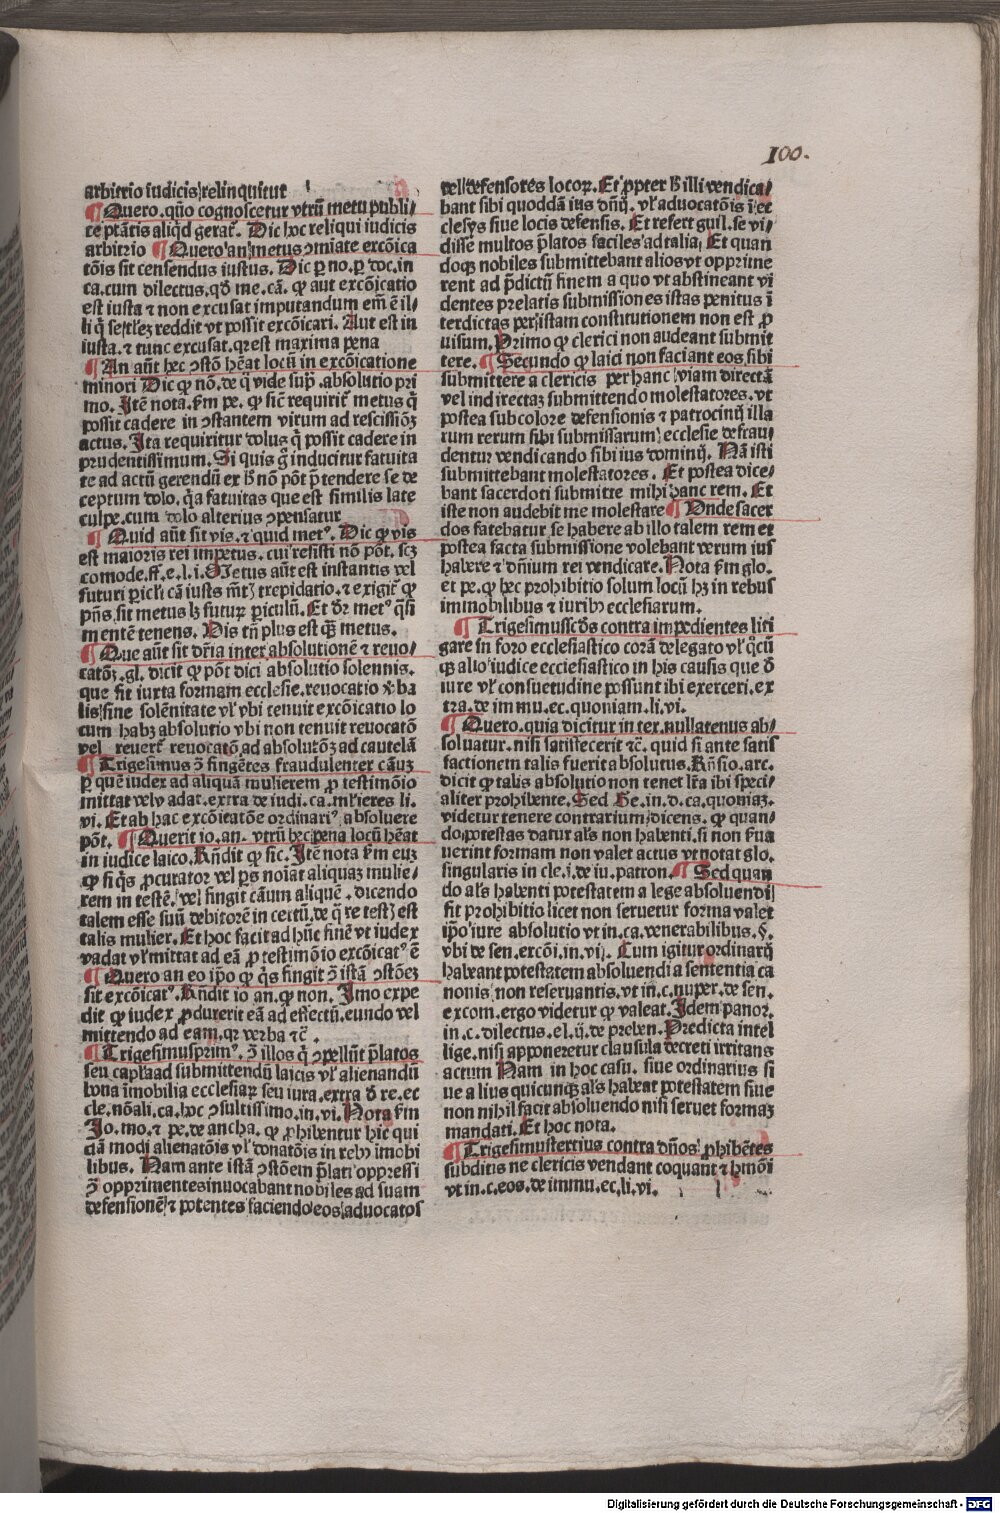 100.
arbitrio iudicis relinquitur
¶ Quero. quo cognoscetur vtrū metu publi⸗
ce ptātis aliqd gerat᷑. Dic hoc reliqui iudicis
arbitrio ¶ Quero an metus ꝯmiate excōica
tōis sit censendus iustus. Dic ꝑ no. ꝑ doc. in
ca. cum dilectus. qđ me. cā. ꝙ aut excōicatio
est iusta ⁊ non excusat imputandum em̄ ē il⸗
li q̇ se tlez reddit vt possit excōicari. Aut est in
iusta. ⁊ tunc excusat. qꝛ est maxima pena
¶ An aūt hec ꝯstō hēat locū in excōicatione
minori Dic ꝙ nō. de q̇ vide supͣ. absolutio pri
mo. Itē nota. km̄ pe. ꝙ sic̄ requirit᷑ metus q̇
possit cadere in ꝯstantem virum ad rescissiōꝫ
actus. Ita requiritur dolus q̇ possit cadere in
prudentissimum. Si quis g̊ inducitur fatuita
te ad actū gerendū ex ħ nō pōt p̄tendere se de
ceptum dolo. qͣa fatuitas que est similis late
culpe. cum dolo alterius ꝯpensatur
¶ Quid aūt sit vis. ⁊ quid met⁹. Dic ꝙ vis
est maioris rei impetus. cui resisti nō pōt. scꝫ
comode. ff. e. l. i. Metus aūt est instantis vel
futuri ꝑicl'i cā iusta mētꝭ trepidatio. ⁊ exigit᷑ ꝙ
pn̄s sit metus lꝫ futuꝝ ꝑiculū. Et dr̄ met⁹ qͣsi
mentē tenens. Vis tn̄ plus est qͣꝫ metus.
¶ Que aūt sit dr̄ia inter absolutionē ⁊ reuo⸗
catōꝫ. gl. dicit ꝙ pōt dici absolutio solennis.
que fit iuxta formam ecclesie. reuocatio v̊ ba
lis sine solēnitate vl' vbi tenuit excōicatio lo
cum habꝫ absolutio vbi non tenuit reuocatō
vel reuert᷑ reuocatō ad absolutōꝫ ad cautelā
¶ Trigesimus ꝯ̄ fingētes fraudulenter cāuꝫ
ꝑ quē iudex ad aliquā mulierem ꝓ testimōio
mittat vel vadat. extra de iudi. ca. mlieres li.
vi. Et ab hac excōicatōe ordinari⁹ absoluere
pōt. ¶ Querit io. an. vtrū hec pena locū hēat
in iudice laico. Rn̄dit ꝙ sic. Itē nota km̄ euꝫ
ꝙ si qͥs ꝓcurator vel ꝑs noīat aliquaꝫ mulie⸗
rem in testē. vel fingit cāum aliquē. dicendo
talem esse suū debitorē in certū. de q̇ re testꝭ est
talis mulier. Et hoc facit ad hūc finē vt iudex
vadat vl' mittat ad eā ꝓ testimōio excōicat⁹ ē
¶ Quero an eo ip̄o ꝙ qͥs fingit ꝯ̄ istā ꝯstōeꝫ
sit excōicat⁹. Rn̄dit io an. ꝙ non. Imo expe
dit ꝙ iudex ꝓduxerit eā ad effectū. eundo vel
mittendo ad eam. qꝛ verba ⁊c̄.
¶ Trigesimusprim⁹. ꝯ̄ illos q̇ ꝯpellūt p̄latos
seu capl'a ad submittendū laicis vl' alienandū
bona īmobilia ecclesiaꝝ seu iura. extra đ re. ec
cle. nō ali. ca. hoc ꝯsultissimo. in. vi. Nota km̄
Jo. mo. ⁊ pe. de ancha. ꝙ ꝓhibentur hic qui
dā modi alienatōis vl' donatōis in rebꝰ imobi
libus. Nam ante istā ꝯstōem p̄lati oppressi
ꝯ̄ opprimentes inuocabant nobiles ad suam
defensionē ⁊ potentes faciendo eos aduocatos
vel defensores locoꝝ. Et ꝓpter ħ illi vendica⸗
bant sibi quoddā ius dn̄ij. vl' aduocatōis ī ec
clesijs siue locis defensis. Et refert guil. se vi⸗
disse multos p̄latos faciles ad talia. Et quan
doqꝫ nobiles submittebant alios vt opprime
rent ad p̄dictū finem a quo vt abstineant vi
dentes prelatis submissiones istas penitus ī
terdictas per istam constitutionem non est ꝓ
uisum. Primo ꝙ clerici non audeant submit
tere. ¶ Secundo ꝙ laici non faciant eos sibi
submittere a clericis per hanc viam directā
vel indirectaꝫ submittendo molestatores. vt
postea sub colore defensionis ⁊ patrocinij illa
rum rerum sibi submissarum ecclesie defrau⸗
dentur vendicando sibi ius dominij. Nā isti
submittebant molestatores. Et postea dice⸗
bant sacerdoti submitte mihi hanc rem. Et
iste non audebit me molestare ¶ Vnde sacer
dos fatebatur se habere ab illo talem rem et
postea facta submissione volebant verum ius
habere ⁊ dn̄ium rei vendicare. Nota km̄ glo.
et pe. ꝙ hec prohibitio solum locū hꝫ in rebus
immobilibus ⁊ iuribꝰ ecclesiarum.
¶ Trigesimusscđs contra impedientes liti
gare in foro ecclesiastico corā delegato vl' qͦcū
qꝫ alio iudice ecclesiastico in his causis que đ
iure vl' consuetudine possunt ibi exerceri. ex
tra. de immu. ec. quoniam. li. vi.
¶ Quero. quia dicitur in tex. nullatenus ab⸗
soluatur. nisi satisfecerit ⁊c̄. quid si ante satis
factionem talis fuerit absolutus. Rn̄sio. arc.
dicit ꝙ talis absolutio non tenet lr̄a ibi speci⸗
aliter prohibente. Sed Ge. in. d. ca. quoniaꝫ.
videtur tenere contrarium dicens. ꝙ quan⸗
do potestas datur al's non habenti. si non ẜua
uerint formam non valet actus vt notat glo.
singularis in cle. i. de iu. patron. ¶ Sed quan
do al's habenti potestatem a lege absoluendi
fit prohibitio licet non seruetur forma valet
ip̄o iure absolutio vt in. ca. venerabilibus. §.
vbi de sen. excōi. in. vj. Cum igitur ordinarij
habeant potestatem absoluendi a sententia ca
nonis non reseruantis. vt in. c. nuper. de sen.
excom. ergo videtur ꝙ valeat. Idem panor.
in. c. dilectus. el. ij. de preben. Predicta intel
lige. nisi apponeretur clausula decreti irritans
actum Nam in hoc casu. siue ordinarius si
ue alius quicunqꝫ al's habeat potestatem siue
non nihil facit absoluendo nisi seruet formaꝫ
mandati. Et hoc nota.
¶ Trigesimustertius contra dn̄os ꝓhibētes
subditis ne clericis vendant coquant ⁊ hmōi
vt in. c. eos. de immu. ec. li. vi.
Digitalisierung gefördert durch die Deutsche Forschungsgemeinschaft - DFG